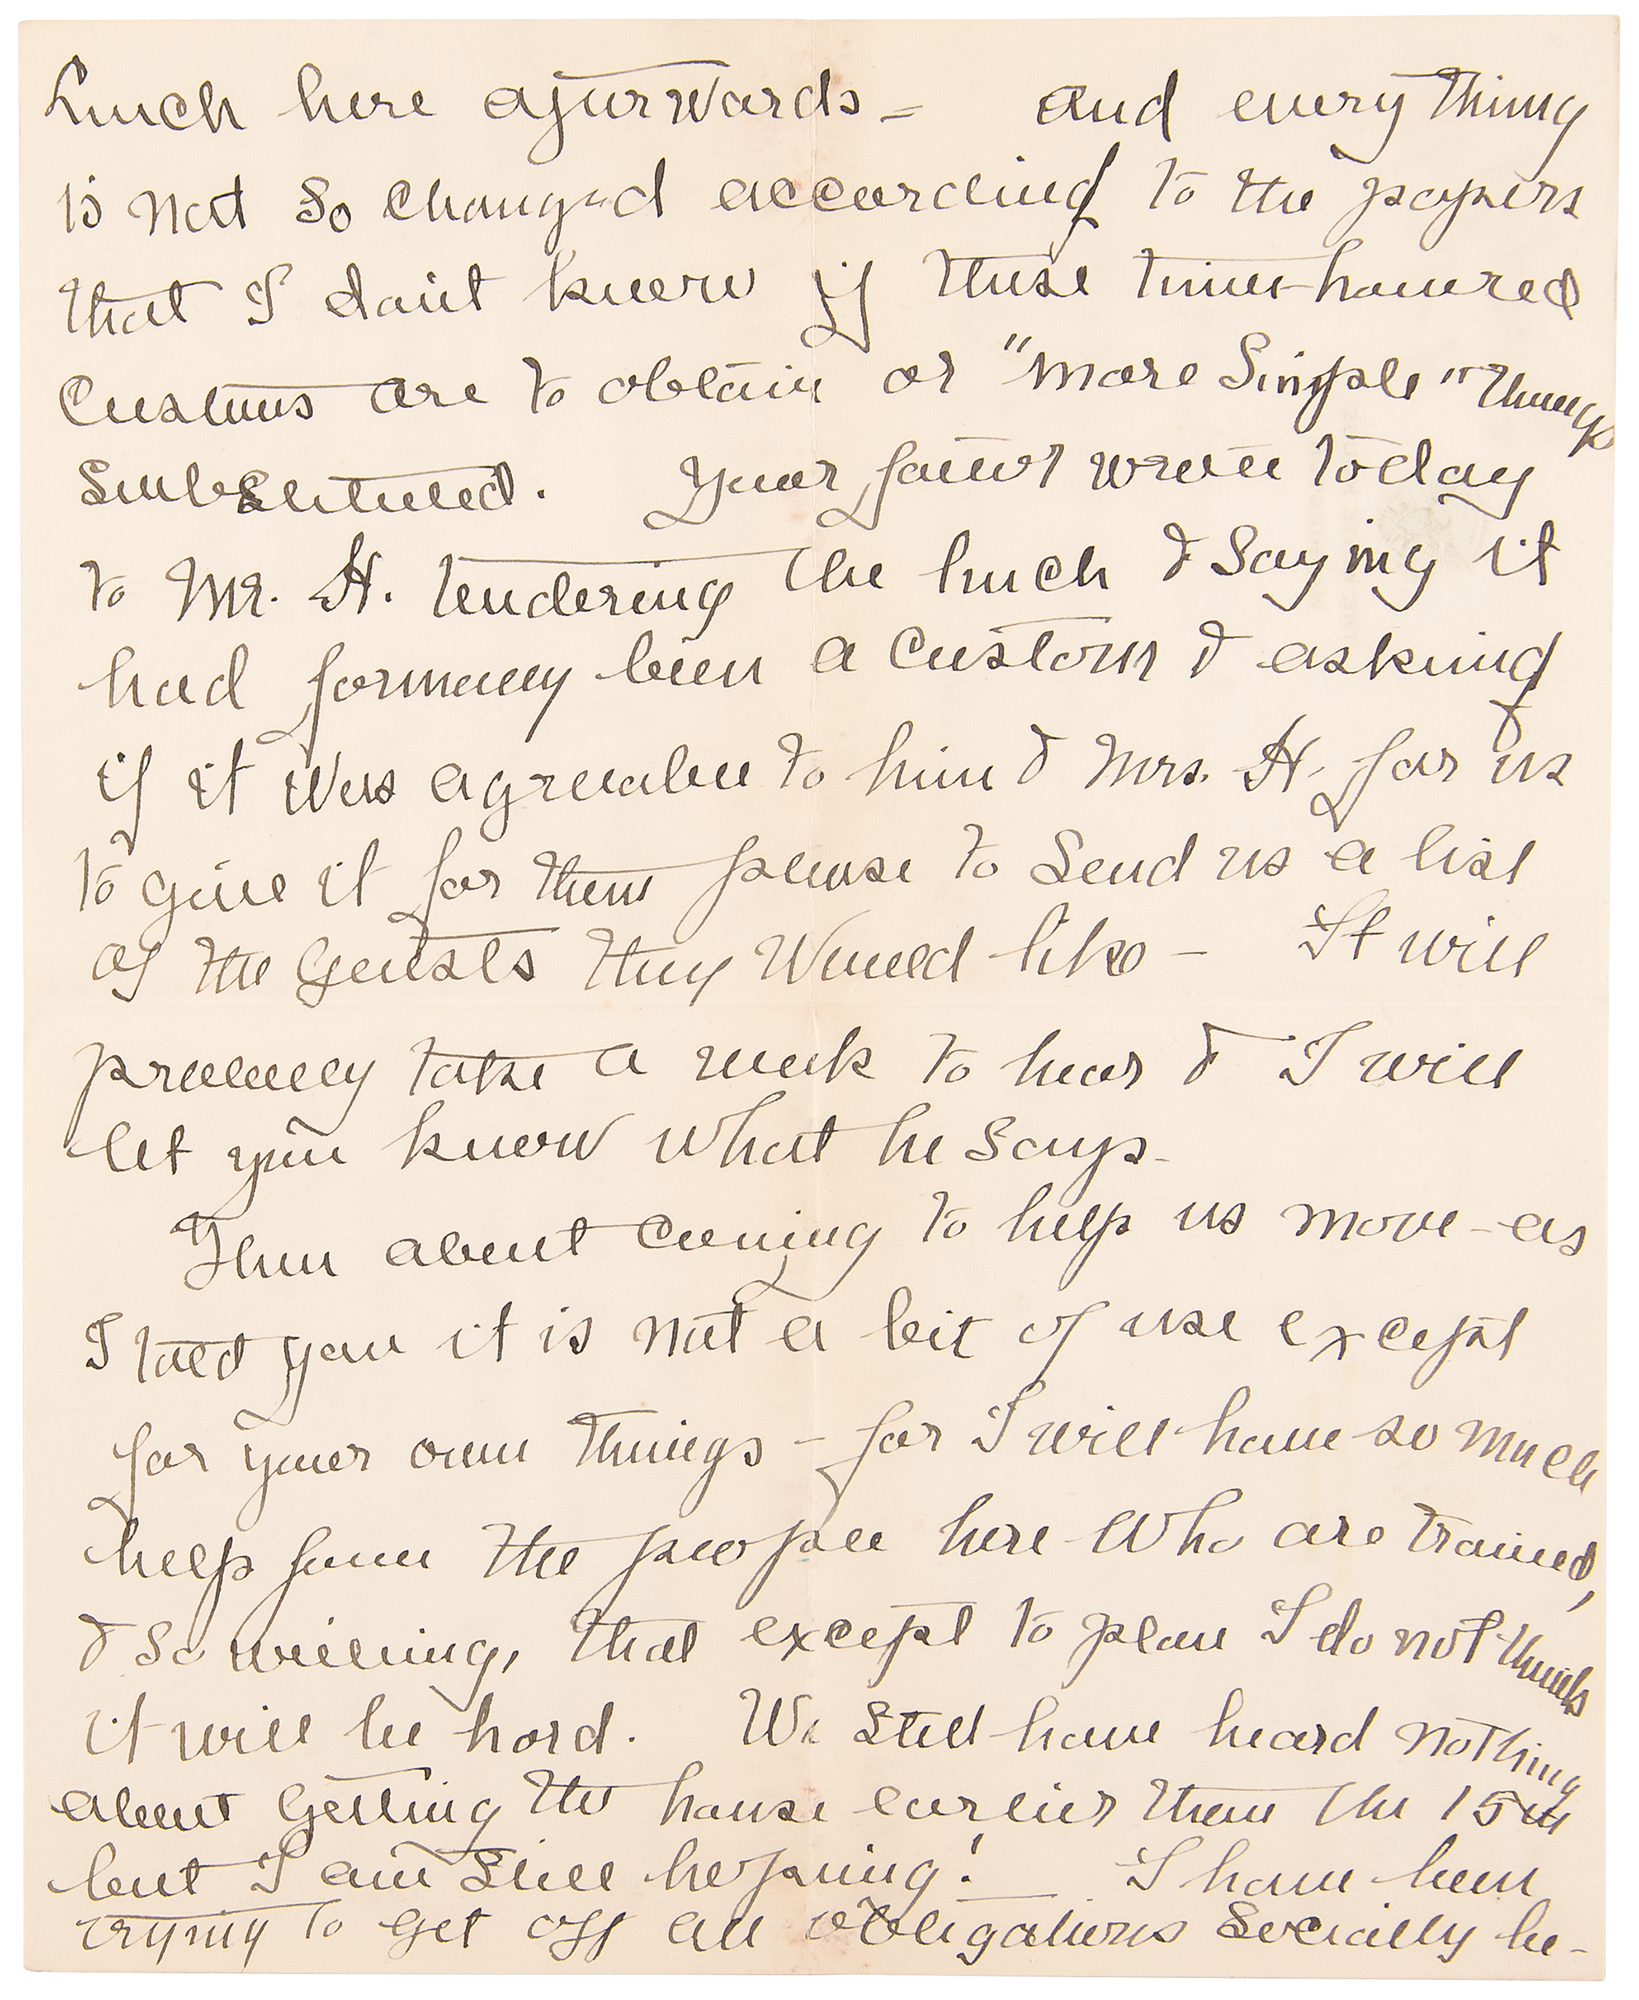 lunch here afterwards – and everything
is not so changed according to the papers
that I don't know if these time-honored
customs are to obtain or "more simple" things
substituted. Your father wrote today
to Mr. H. tendering the lunch & saying it
had formally been a custom & asking
if it was agreeable to him & Mrs. H. for us
to give it for them please to send us a list
of the guests they would like – It will
probably take a week to hear & I will
let you know what he says –
Then about coming to help us move – as
I told you it is not a bit of use except
for your own things – for I will have so much
help from the people here who are trained,
& so willing, that except to plan I do not think
it will be hard. We still have heard nothing
about getting the house earlier than the 15th
but I am still hoping! I have been
trying to get off all obligations socially be-